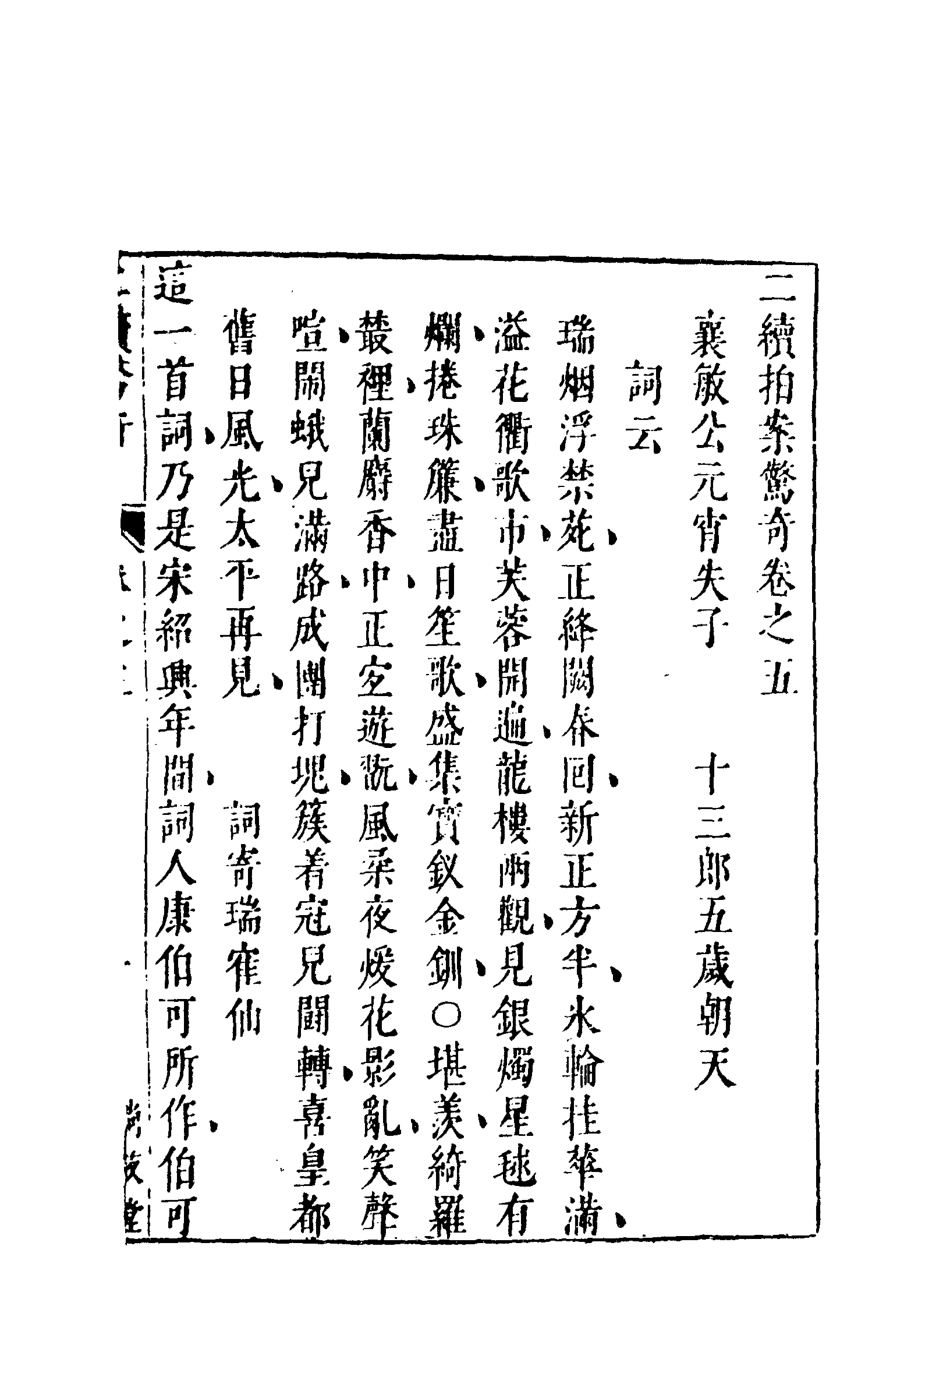 二續拍案驚奇卷之五
襄敏公元宵失子　十三郎五歲朝天
詞云
瑞烟浮禁苑、正絳闕春囘、新正方半、氷輪挂華滿、
溢花衢歌市、芙蓉開遍、龍樓兩觀、見銀燭星毬有
爛、捲珠簾、盡日笙歌、盛集寶釵金釧、〇堪羡、綺羅
叢裡、蘭麝香中、正宜遊翫、風柔夜煖花影亂、笑聲
喧、鬧蛾兒滿路、成團打塊、簇着冠兒鬪轉、喜皇都
舊日風光、太平再見、　詞寄瑞寉仙
這一首詞、乃是宋紹興年間、詞人康伯可所作、伯可
卷之五
尚友堂